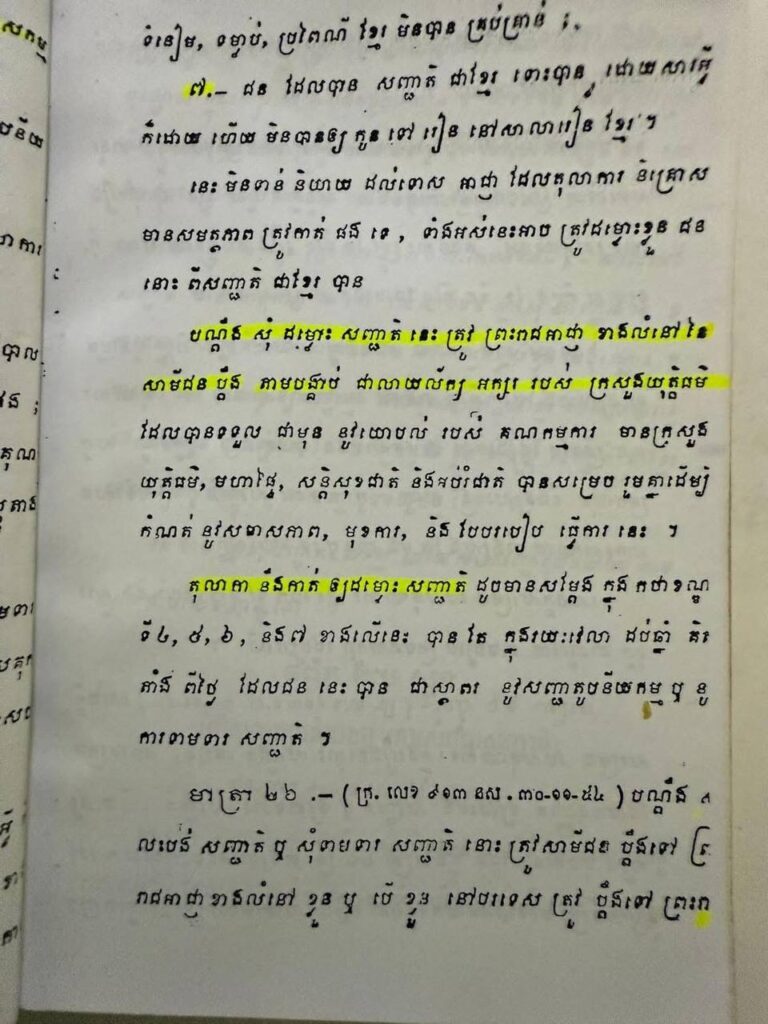 ទំនៀម, ទម្លាប់, ប្រពៃណី ខ្មែរ មិនបាន គ្រប់គ្រាន់ ;
៧.– ជន ដែលបាន សញ្ជាតិ ជាខ្មែរ ទោះបាន ដោយសារអ្វី
ក៏ដោយ ហើយ មិនបានឲ្យ កូន ទៅ រៀន នៅសាលារៀន ខ្មែរ ។
នេះ មិនទាន់ និយាយ ដល់ទោស អាជ្ញា ដែលតុលាការ និគ្រោស
មានសមត្ថភាព ត្រូវកាត់ ផង ទេ , ទាំងអស់នេះអាច ត្រូវដម្ហោះខ្លួន ជន
នោះ ពីសញ្ជាតិ ជាខ្មែរ បាន
បណ្ដឹង សុំ ដម្ហោះ សញ្ជាតិ នេះ ត្រូវ ព្រះរាជអាជ្ញា ខាងលំនៅ នៃ
សាមីជន ប្ដឹង តាមបង្គាប់ ជាលាយល័ក្ខ អក្សរ របស់ ក្រសួងយុត្តិធម៌
ដែលបានទទួល ជាមុន នូវយោបល់ របស់ គណកម្មការ មានក្រសួង
យុត្តិធម៌, មហាផ្ទៃ, សន្តិសុខជាតិ និងអប់រំជាតិ បានសម្រេច រួមគ្នាដើម្បី
កំណត់ នូវសមាសភាព, មុខការ, និង បែបរបៀប ធ្វើការ នេះ ។
តុលាកា នឹងកាត់ ឲ្យដម្ហោះ សញ្ជាតិ ដូចមានសម្ដែង ក្នុង កថាខណ្ឌ
ទី៤, ៥, ៦, និង៧ ខាងលើនេះ បាន តែ ក្នុងរយៈវេលា ដប់ឆ្នាំ គិត
តាំង ពីថ្ងៃ ដែលជន នេះ បាន ជាស្ថាពរ នូវសញ្ជាតូបនីយកម្ម ឬ នូ
ការទាមទារ សញ្ជាតិ ។
មាត្រា ២៦ .– ( ក្រ. លេខ ៩១៣ នស . ៣០-១១-៥៤ ) បណ្ដឹង
លះបង់ សញ្ជាតិ ឬ សុំទាមទារ សញ្ជាតិ នោះ ត្រូវសាមីជន ប្ដឹងទៅ
រាជអាជ្ញា ខាងលំនៅ ខ្លួន ឬ បើ ខ្លួន នៅបរទេស ត្រូវ ប្ដឹងទៅ ព្រះរា